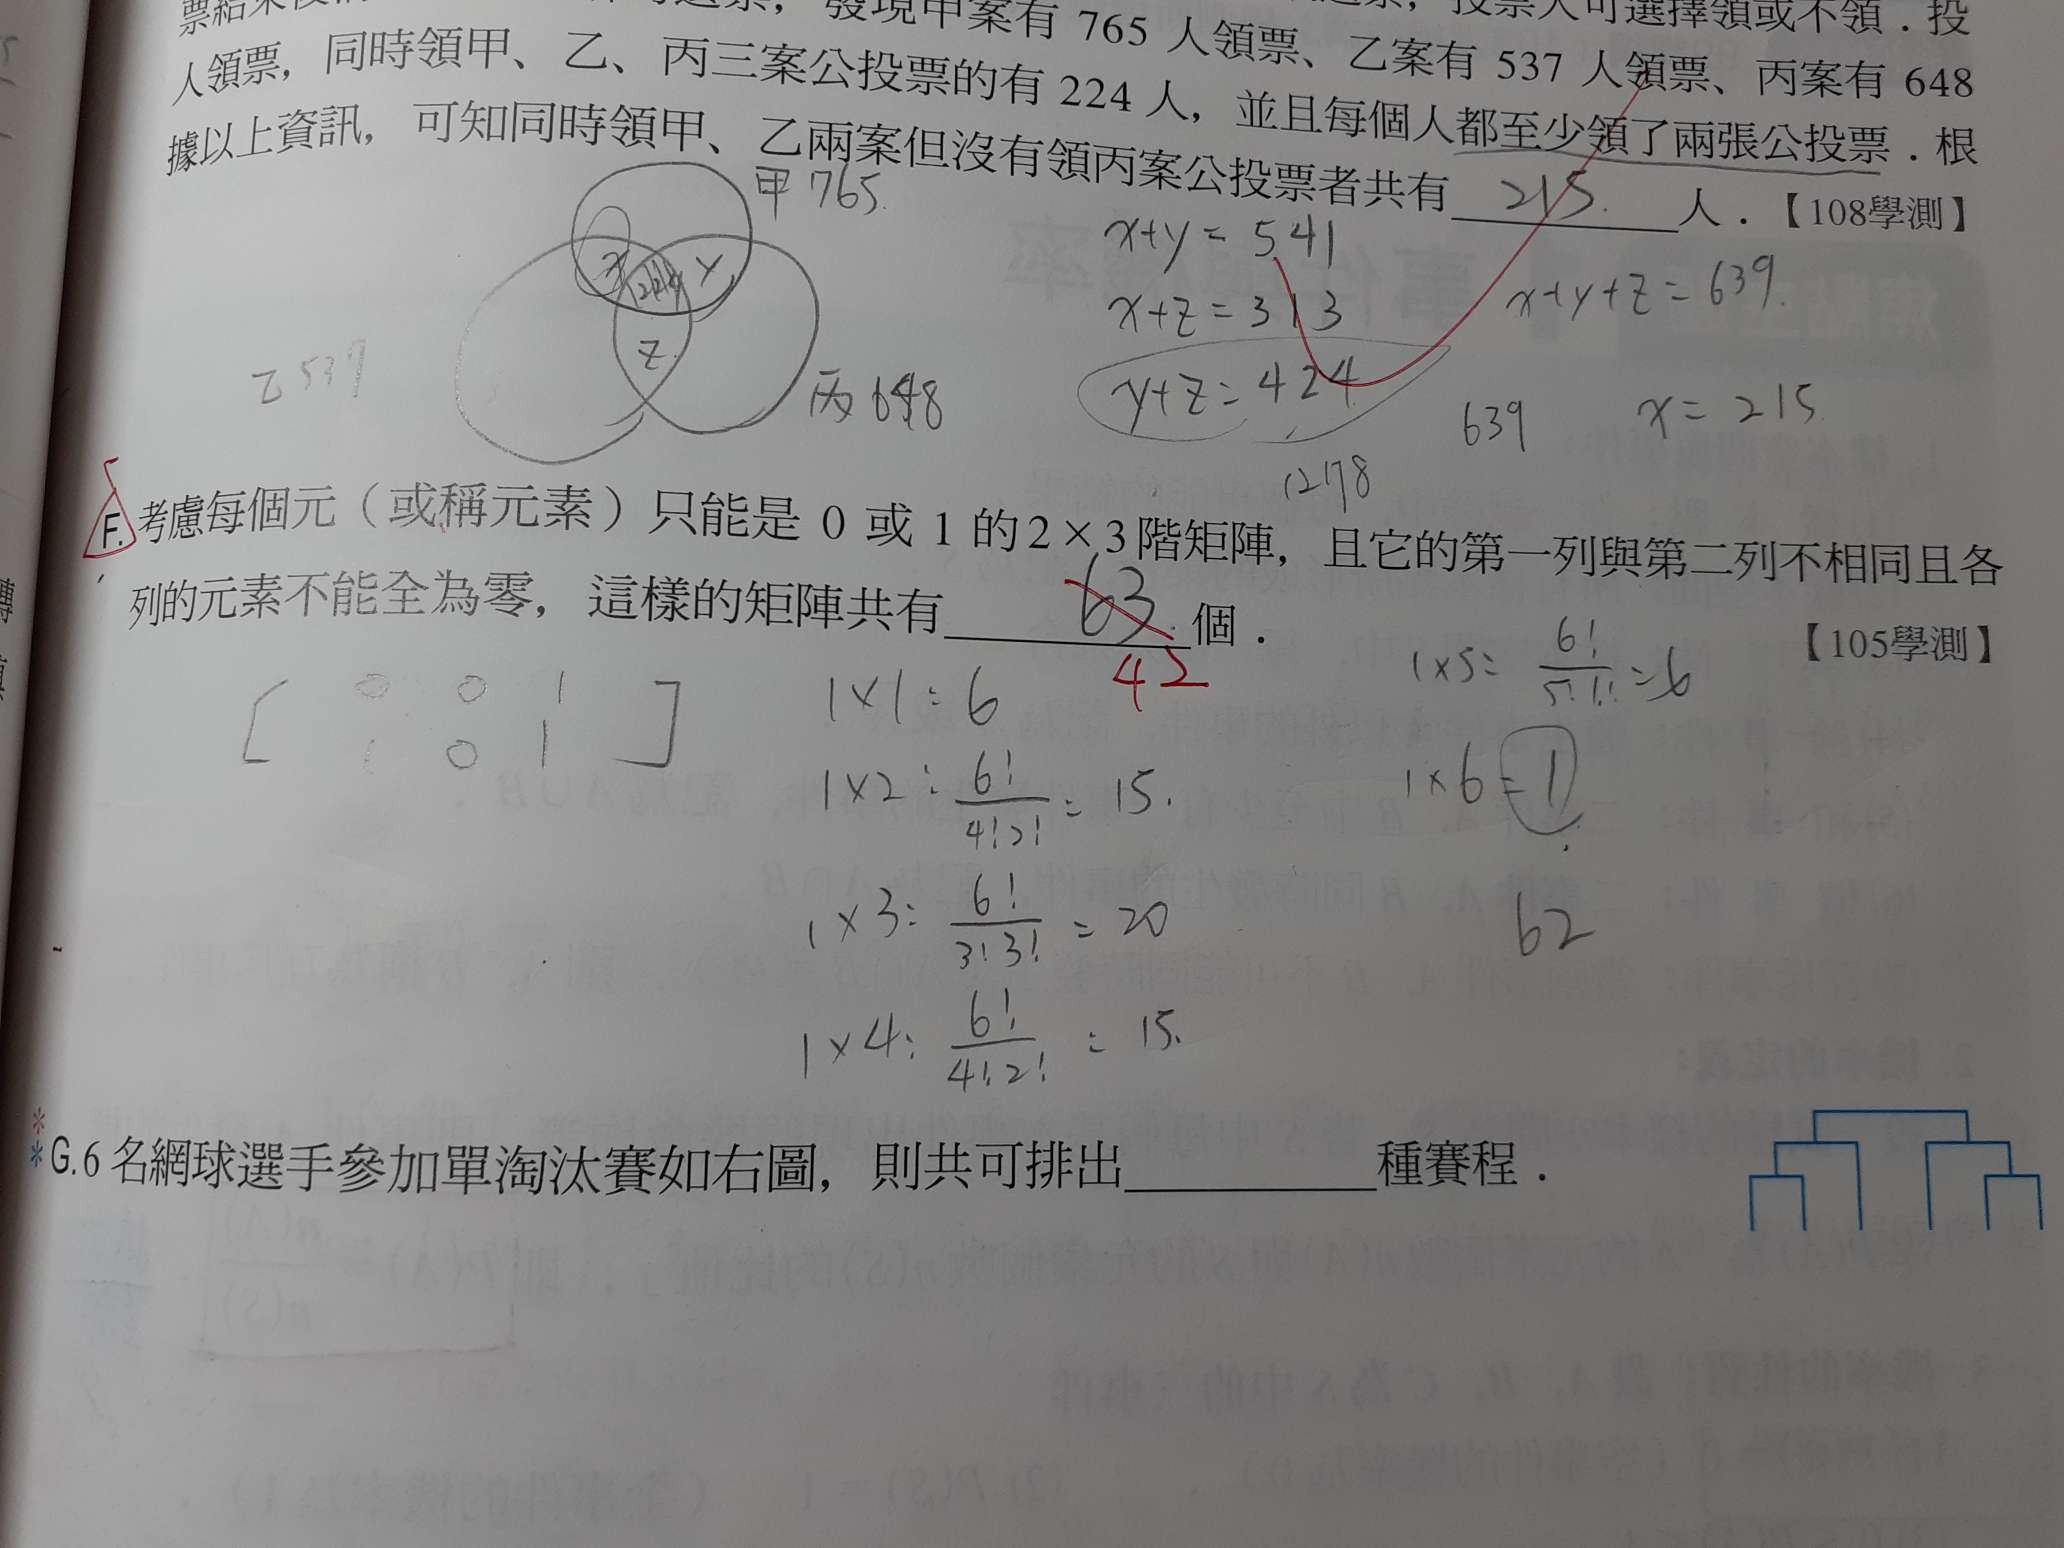 發現甲案有 765 人領票、乙案有 537 人領票、丙案有 648
人領票，同時領甲、乙、丙三案公投票的有 224 人，並且每個人都至少領了兩張公投票．根
據以上資訊，可知同時領甲、乙兩案但沒有領丙案公投票者共有 215. 人．【108學測】
甲 765.
x+y = 541
x+z = 313
x+y+z = 639.
x 224 y
z
乙 537
丙 648
y+z = 424
639
x = 215
1278
F. 考慮每個元（或稱元素）只能是 0 或 1 的 2×3 階矩陣，且它的第一列與第二列不相同且各
列的元素不能全為零，這樣的矩陣共有 63 個．
42
【105學測】
[ 0 0 1
1 0 1 ]
1×1 : 6
1×5 = 6!/5!1! = 6
1×2 : 6!/4!2! = 15.
1×6 = 1
1×3 : 6!/3!3! = 20
62
1×4 : 6!/4!2! = 15.
**G.6 名網球選手參加單淘汰賽如右圖，則共可排出 種賽程．